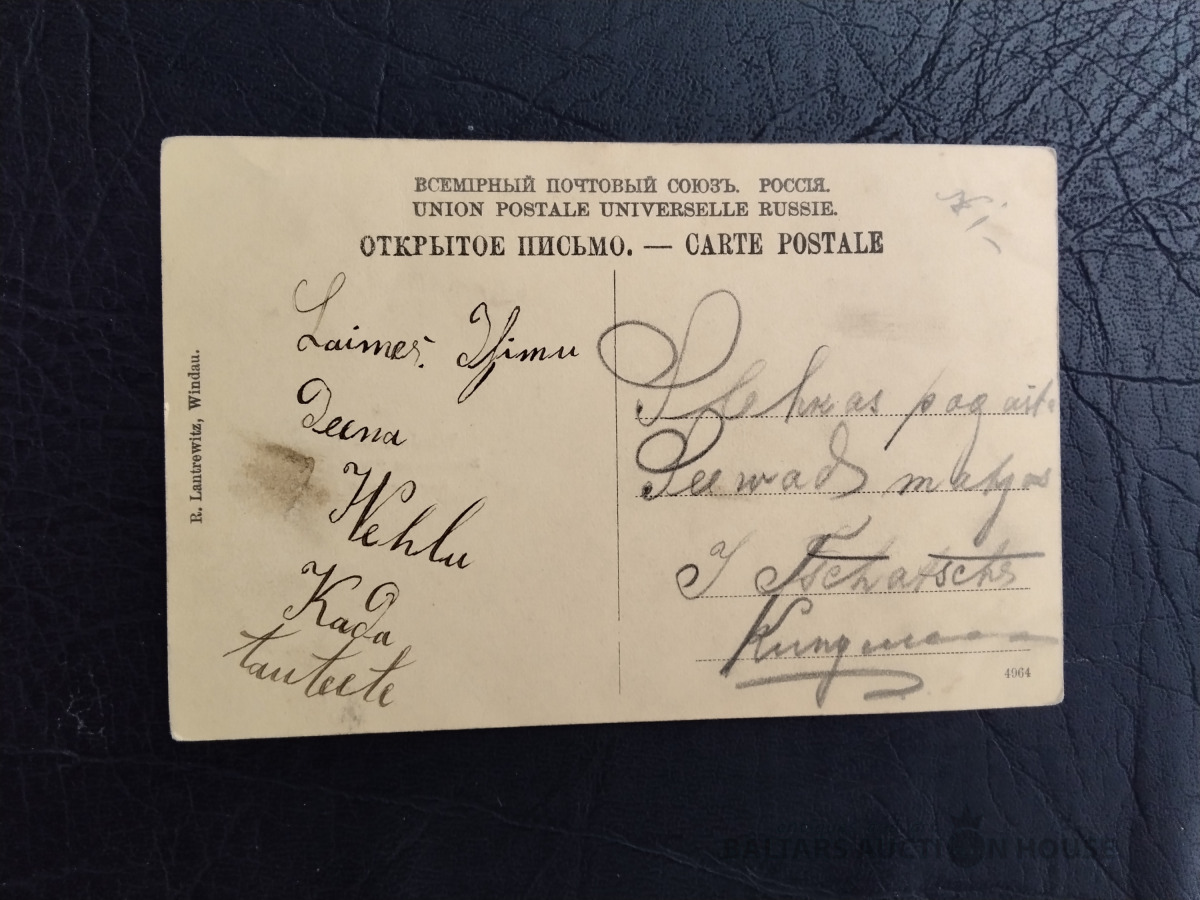 ВСЕМІРНЫЙ ПОЧТОВЫЙ СОЮЗЪ. РОССІЯ.
UNION POSTALE UNIVERSELLE RUSSIE.
ОТКРЫТОЕ ПИСЬМО. — CARTE POSTALE
R. Lantrewitz, Windau.
Laimes
Deena
Wehlu
Kada
tanteete
pag
Peewads
J Tschatschs
Kungam
4964
BALTARS AUCTION HOUSE